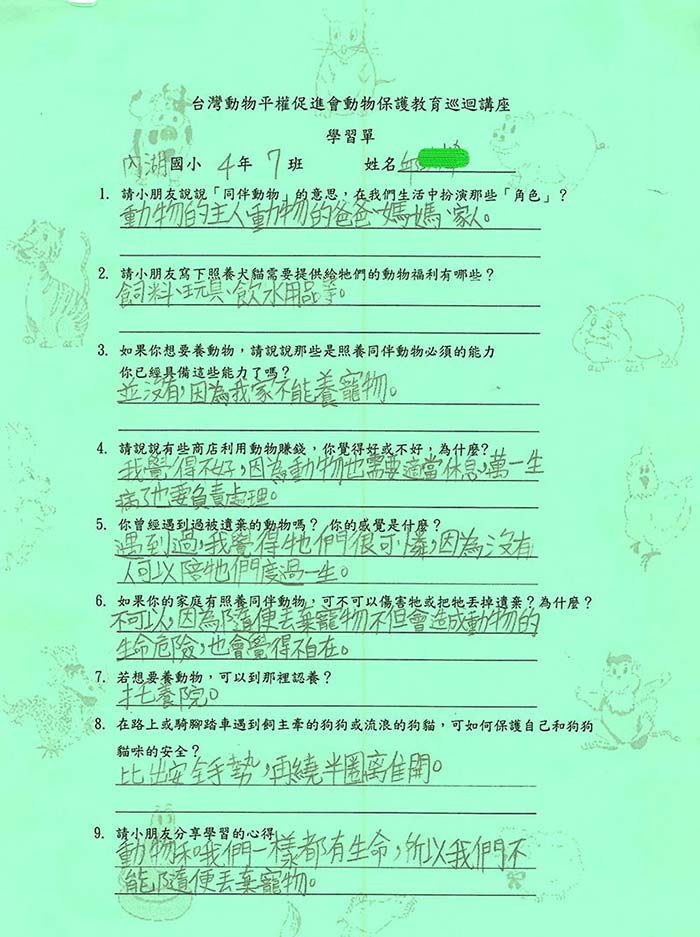 台灣動物平權促進會動物保護教育巡迴講座
學習單
內湖國小 4年 7班 姓名邱
1. 請小朋友說說「同伴動物」的意思，在我們生活中扮演那些「角色」？
動物的主人、動物的爸爸、媽媽、家人。
2. 請小朋友寫下照養犬貓需要提供給牠們的動物福利有哪些？
飼料、玩具、飲水用品等。
3. 如果你想要養動物，請說說那些是照養同伴動物必須的能力
你已經具備這些能力了嗎？
並沒有，因為我家不能養寵物。
4. 請說說有些商店利用動物賺錢，你覺得好或不好，為什麼？
我覺得不好，因為動物也需要適當休息，萬一生
病了也要負責處理。
5. 你曾經遇到過被遺棄的動物嗎？ 你的感覺是什麼？
遇到過，我覺得牠們很可憐，因為沒有
人可以陪牠們度過一生。
6. 如果你的家庭有照養同伴動物，可不可以傷害牠或把牠丟掉遺棄？為什麼？
不可以，因為隨便丟棄寵物不但會造成動物的
生命危險，也會覺得不自在。
7. 若想要養動物，可以到那裡認養？
托養院。
8. 在路上或騎腳踏車遇到飼主牽的狗狗或流浪的狗貓，可如何保護自己和狗狗
貓咪的安全？
比出安全手勢，再繞半圈離開。
9. 請小朋友分享學習的心得
動物和我們一樣都有生命，所以我們不
能隨便丟棄寵物。